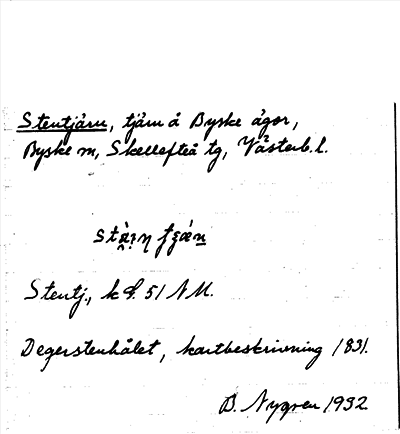 Stentjärn, tjärn å Byske ägor,
Byske sn, Skellefteå tg, Västerb. l.
Stentj., k bl. 51 NM.
Degerstenhålet, kartbeskrivning 1831.
B. Nygren 1932